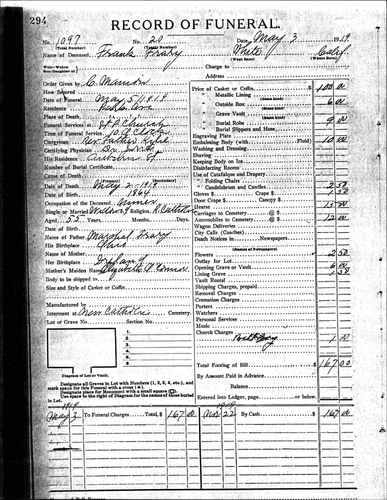 294
RECORD OF FUNERAL.
No. 1097 No. 20 May 3 1919
(Total Number) (Yearly Number)
Name of Deceased Frank Frary White Calif.
(What Race) (Where Born)
Wife-Widow
Son-Daughter of Charge to
Address
Order Given by C. Manson
How Secured
Date of Funeral May 5/1919
Residence
Place of Death
Funeral Services at Church
Time of Service 10 O'Clock
Clergyman Rev. Father
Certifying Physician Dr.
His Residence Auburn
Number of Burial Certificate
Cause of Death
Date of Death May 2 - 1919
Date of Birth 1864
Occupation of the Deceased Miner
Single or Married Religion R. Catholic
Aged 55 Years Months. Days.
Name of Father Marshal Frary
His Birthplace
Name of Mother
Her Birthplace Ireland
Mother's Maiden Name Elizabeth O'Connor
Body to be shipped to
Size and Style of Casket or Coffin
Manufactured by
Interment at New Catholic Cemetery.
Lot or Grave No. Section No.
1
2
3
4
5
6
Diagram of Lot or Vault.
Designate all Graves in Lot with Numbers (1, 2, 3, 4, etc.), and
mark space for this Funeral with a cross (+).
Designate place for Monument with a small square (□).
Use space to the right of Diagram for names of those buried
in Lot.
Price of Casket or Coffin $ 100 00
" Metallic Lining
(State kind)
" Outside Box 6 00
(State kind)
" Grave Vault
(State kind)
" Burial Robe 9 00
(State kind)
" Burial Slippers and Hose
Engraving Plate
Embalming Body (with Fluid) 10 00
Washing and Dressing
Shaving
Keeping Body on Ice
Disinfecting Rooms
Use of Catafalque and Drapery
" Folding Chairs
" Candelabrum and Candles 2 50
Gloves 1 50
Door Crape Canopy
Hearse 15 00
Carriages to Cemetery @ $
Automobiles to Cemetery @ $ 12 00
Wagon Deliveries
City Calls (Coaches)
Death Notices in Newspapers
(Names of Newspapers)
Flowers 2 50
Outlay for Lot
Opening Grave or Vault 6 00
Lining Grave 1 50
Vault Rental
Shipping Charges, prepaid
Removal Charges
Cremation Charges
Porters
Watchers
Personal Services
Music
Church Charges
1 00
Total Footing of Bill $ 167 00
By Amount Paid in Advance
Balance
Entered into Ledger, page or below.
1919 1919
May 3 To Funeral Charges Total, $ 167 00 Nov 22 By Cash $ 167 00